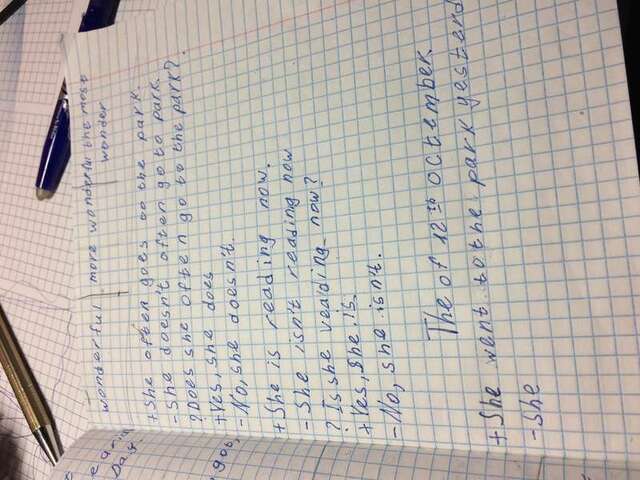 earin
Day
wonderful | more wonderful | the most
wonder
+She often goes to the park.
-She doesn't often go to park.
?Does she often go to the park?
+Yes, she does
-No, she doesn't.
+She is reading now.
-She isn't reading now
? Is she veading now?
+Yes, she is.
-No, she isn't.
The of 12th october.
+She went to the park yesterd
-She